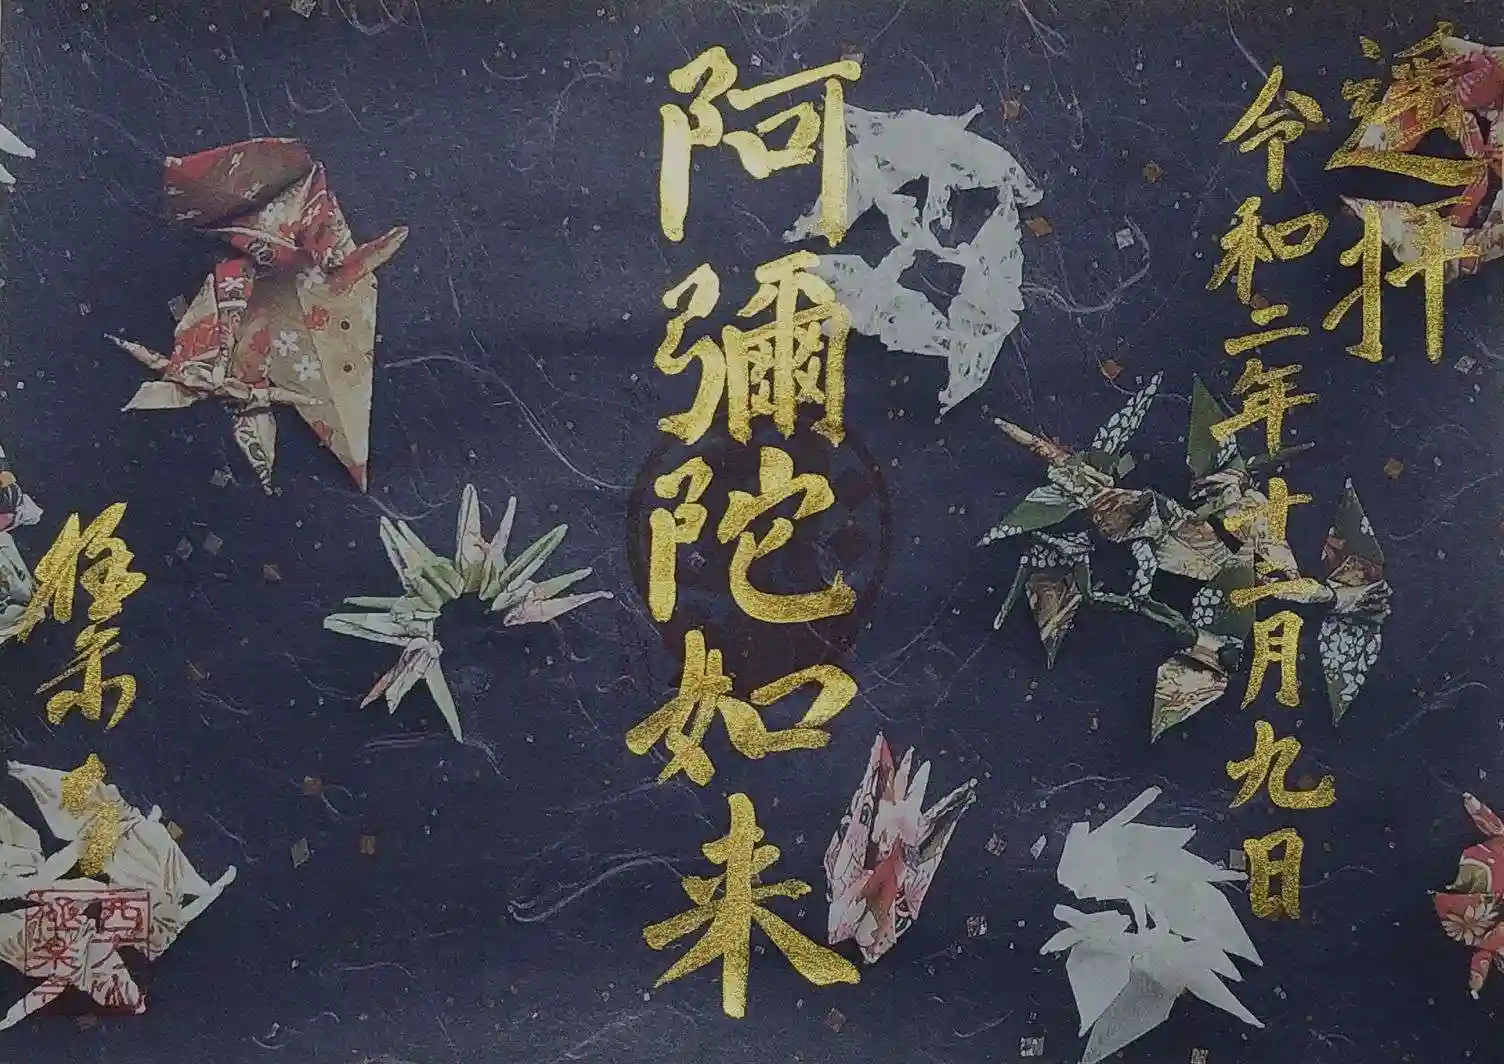 遙拝
令和二年十二月九日
阿彌陀如来
極楽寺
西方山
極楽寺